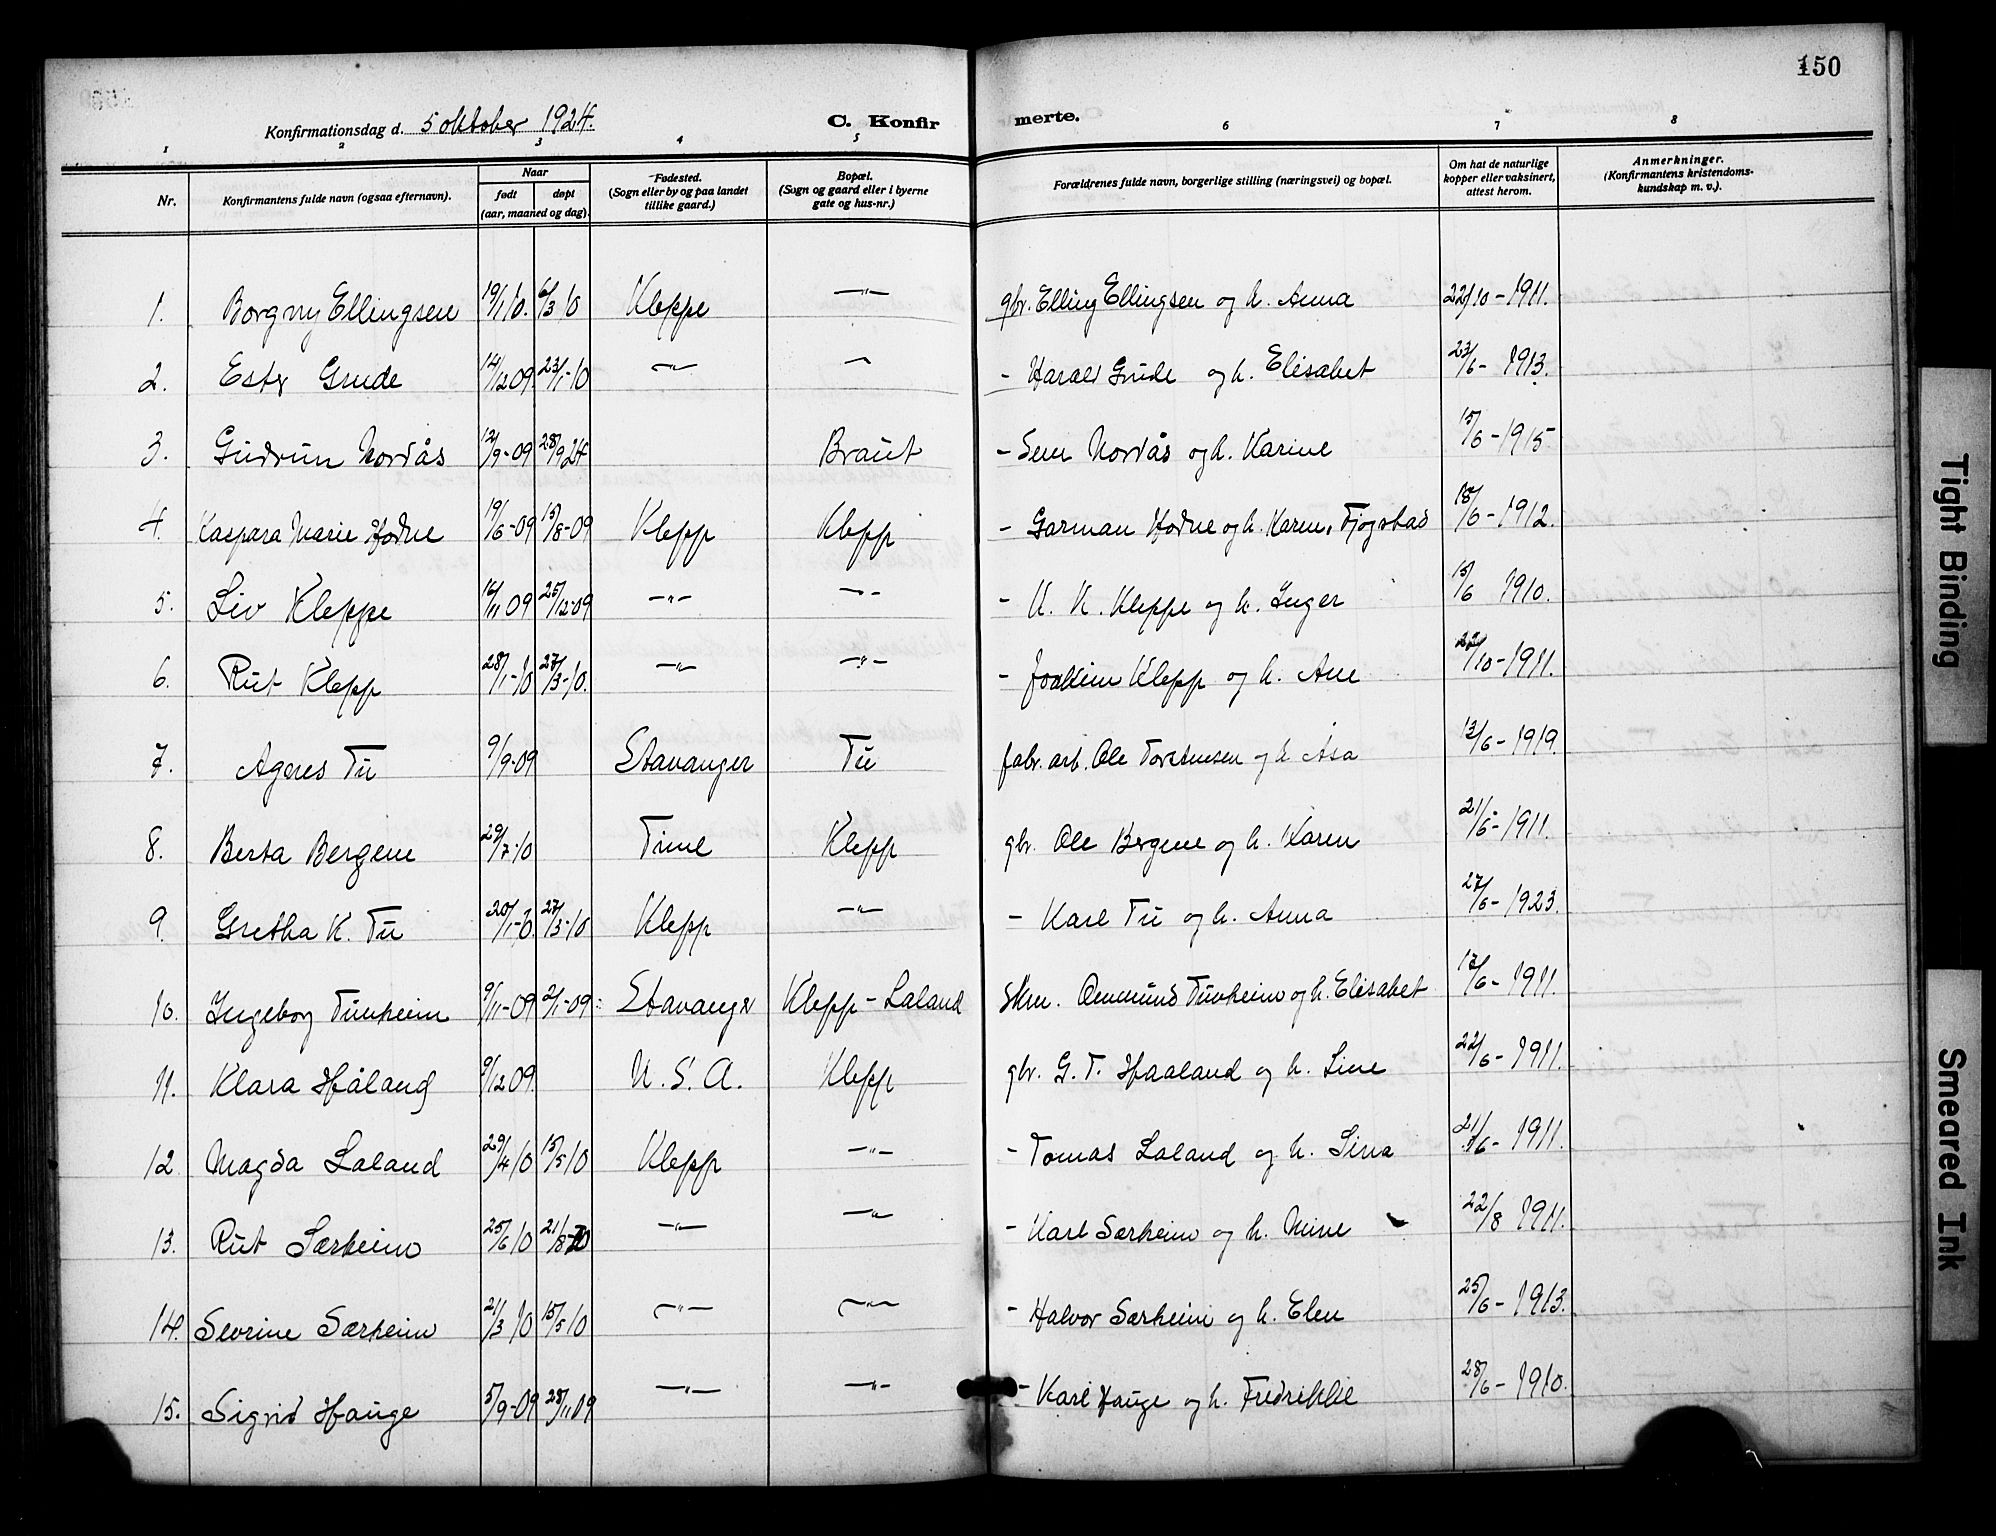 150
Konfirmationsdag d. 5 oktober 1924.
C. Konfirmerte.
1 2 3 4 5 6 7 8
Nr. Konfirmantens fulde navn (ogsaa efternavn). Naar født døpt (aar, maaned og dag). Fødested. (Sogn eller by og paa landet tillike gaard.) Bopæl. (Sogn og gaard eller i byerne gate og hus-nr.) Forældrenes fulde navn, borgerlige stilling (næringsvei) og bopæl. Om hat de naturlige kopper eller vaksinert, attest herom. Anmerkninger. (Konfirmantens kristendomskundskap m. v.).
1. Borgny Ellingsen 19/1 10. 6/3 10 Kleppe —"— gbr. Elling Ellingsen og h. Anna 22/10 - 1911.
2. Ester Grude 14/12 09. 23/1-10 —"— — - Harald Grude og h. Elisabet 23/6 - 1913.
3. Gudrun Nordås 12/9-09 28/9 24 Braut - Sem Nordås og h. Karine 15/6 - 1915.
4. Kaspara Marie Hodne 19/6-09 15/8-09 Klepp Klepp - Garman Hodne og h. Karen, Fjogstad 18/6 - 1912.
5. Liv Kleppe 14/11 09 25/12-09 —"— —"— - K. K. Kleppe og h. Inger 15/6 1910.
6. Rut Klepp 28/1-10 27/3-10. —"— —"— - Joakim Klepp og h. Ane 22/10 - 1911.
7. Agnes Tu 9/9-09 Stavanger Tu fabr. arb. Ole Torstensen og h Åsa 13/6 - 1919.
8. Berta Bergene 29/7-10 Time Klepp gbr. Ole Bergene og h. Karen 21/6 - 1911.
9. Gretha K. Tu 20/1-10. 27/3-10 Klepp —"— - Karl Tu og h. Anna 27/6 - 1923.
10. Ingeborg Tunheim 9/11-09 2/1-09 Stavanger Klepp - Laland Skm. Ommund Tunheim og h. Elisabet 17/6 - 1911.
11. Klara Håland 9/12 09. U. S. A. Klepp gbr. G. T. Haaland og h. Line 22/6 - 1911.
12 Magda Laland 29/4 10 15/5 10 Klepp —"— - Tomas Laland og h. Sina 21/6 - 1911.
13. Rut Særheim 25/6 10 21/8-10 —"— —"— - Karl Særheim og h. Mine 22/8 1911.
14. Sevrine Særheim 21/3 10 15/5 10 —"— —"— - Halvor Særheim og h. Elen 25/6 - 1913.
15. Sigrid Hauge 5/9-09 28/11 09 —"— —"— - Karl Hauge og h. Fredrikke 28/6 - 1910.
Tight Binding
Smeared Ink